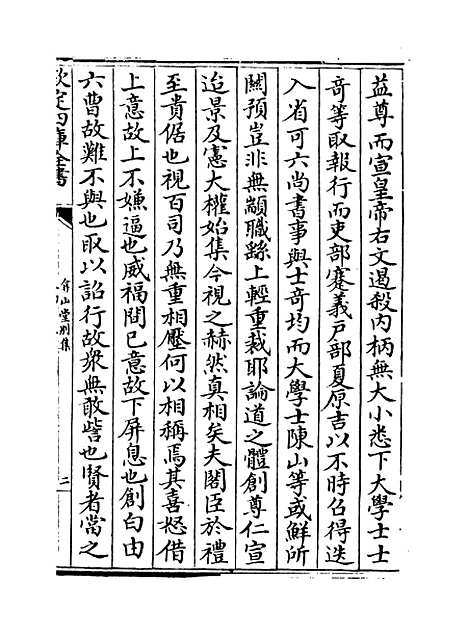 益尊而宣皇帝右文遏殺内柄無大小悉下大學士士
竒等取報行而吏部蹇義戸部夏原吉以不時召得迭
入省可六尚書事與士竒均而大學士陳山等或鮮所
關預豈非無顓職繇上輕重裁耶論道之體創尊仁宣
迨景及憲大權始集今視之赫然真相矣夫閣臣於禮
至貴倨也視百司乃無重相壓何以相稱焉其喜怒借
上意故上不嫌逼也威福閼已意故下屏息也創白由
六曹故難不與也取以詔行故衆無敢訾也賢者當之
欽定四庫全書
弇山堂别集
二